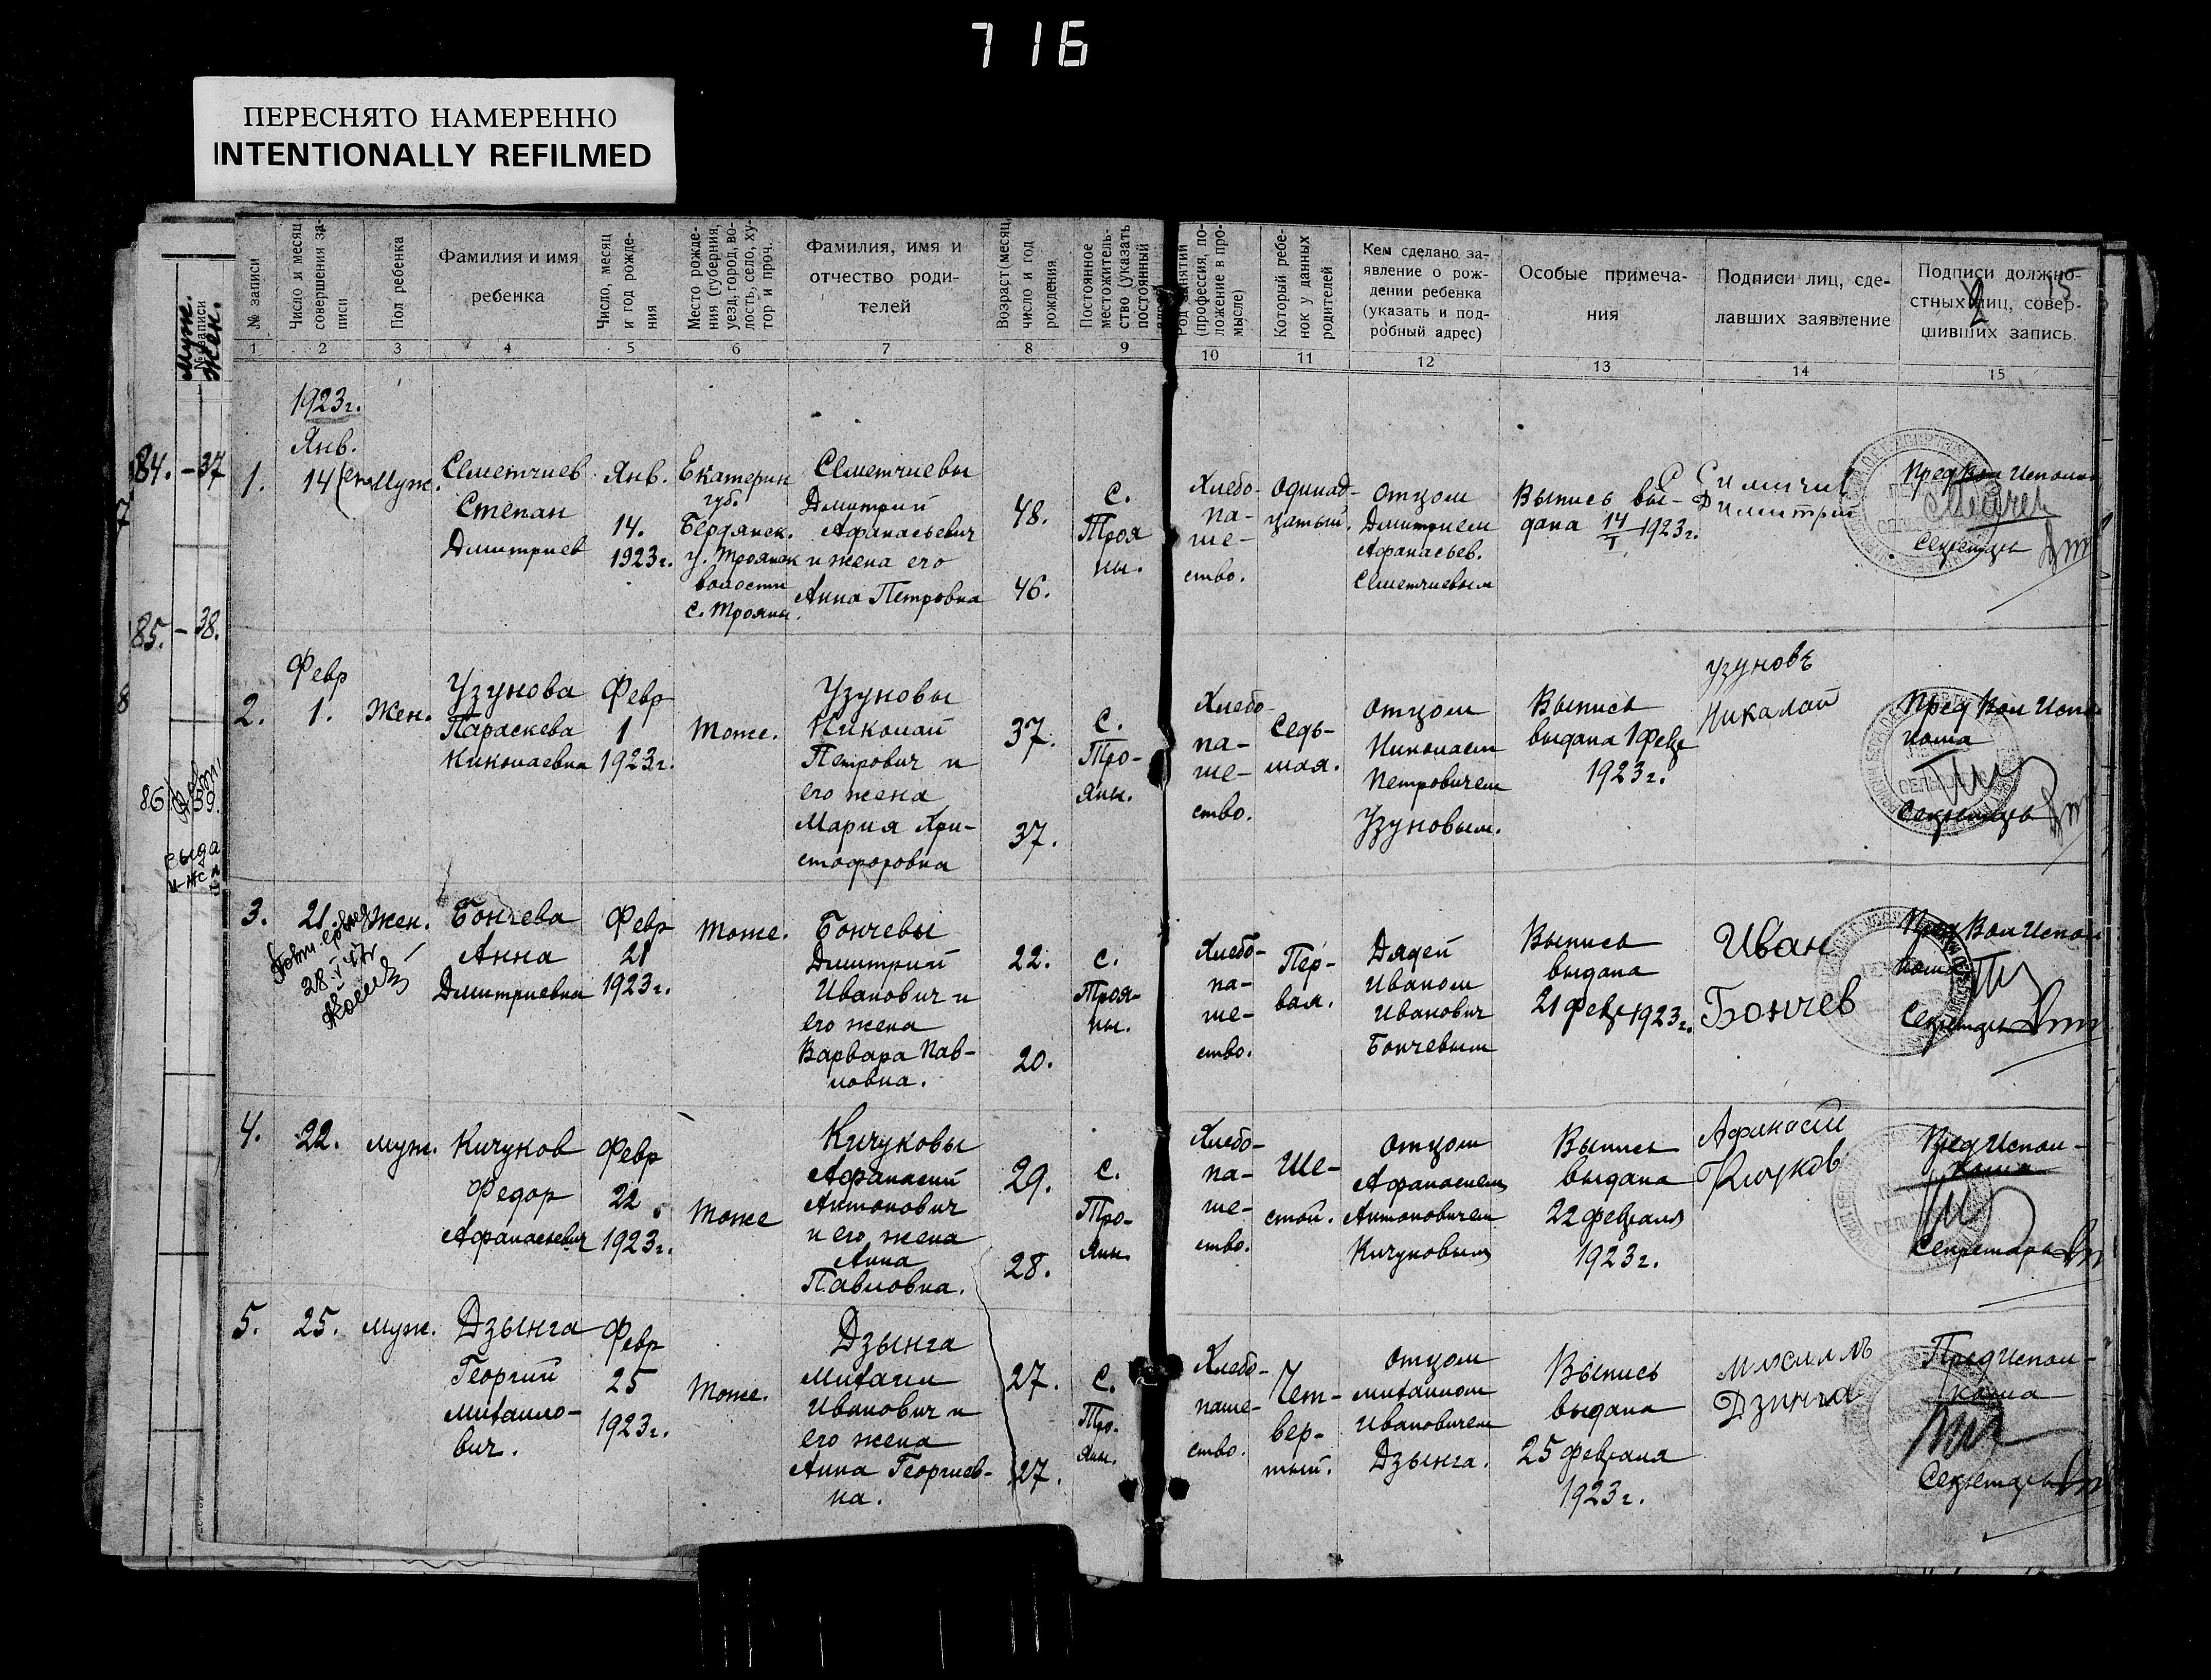 716
ПЕРЕСНЯТО НАМЕРЕННО
INTENTIONALLY REFILMED
Муж.
№ записи
Жен.
84. – 37
85. – 38.
86
№ записи
Число и месяц совершения записи
Пол ребенка
Фамилия и имя
ребенка
Число, месяц и год рождения
Место рождения (губерния, уезд, город, волость, село, хутор и проч.
Фамилия, имя и
отчество роди-
телей
Возраст (месяц, число и год рождения
Постоянное местожительство (указать постоянный
Род занятий (профессия, положение в промысле)
Который ребенок у данных родителей
Кем сделано за-
явление о рож-
дении ребенка
(указать и под-
робный адрес)
Особые примеча-
ния
Подписи лиц, сде-
лавших заявление
Подписи должно-
стных лиц, совер-
шивших запись.
1 2 3 4 5 6 7 8 9 10 11 12 13 14 15
1923г.
Янв.
1.
14
Муж.
Семетчиев
Степан
Дмитриев
Янв.
14.
1923г.
Екатерин
губ.
Бердянск.
у. Троянск
волости
с. Трояны.
Семетчиевы
Дмитрий
Афанасьевич
и жена его
Анна Петровна
48.
46.
С.
Троя
ны.
Хлебо-
па-
ше-
ство.
Одинад-
цатый.
Отцом
Дмитрием
Афанасьев.
Семетчиевым
Выпись вы-
дана 14/I 1923г.
Пред Вол Исполко
Секретарь
2.
Февр
1.
Жен.
Узунова
Параскева
Николаевна
Февр
1
1923г.
Тоже.
Узуновы
Николай
Петрович и
его жена
Мария Хри-
стофоровна
37.
37.
С.
Тро-
яны.
Хлебо-
па-
ше-
ство.
Седь-
мая.
Отцом
Николаем
Петровичем
Узуновым.
Выпись
выдана 1 Февр
1923г.
Узуновъ
Никалай
Пред Вол Испол
кома
Секретарь
3.
21.
Жен.
28 V 47г
Бончева
Анна
Дмитриевна
Февр
21
1923г.
Тоже.
Бончевы
Дмитрий
Иванович и
его жена
Варвара Пав-
ловна.
22.
20.
С.
Троя-
ны.
Хлебо-
па-
ше-
ство.
Пер-
вая.
Дядей
Иваном
Иванович
Бончевым
Выпись
выдана
21 февр 1923г.
Иван
Бончев
Пред Вол Испол
кома
Секретарь
4.
22.
муж.
Кичуков
Федор
Афанасьевич
Февр
22
1923г.
Тоже
Кичуковы
Афанасий
Антонович
и его жена
Анна
Павловна.
29.
28.
С.
Тро-
яны
Хлебо-
па-
ше-
ство.
Ше-
стой.
Отцом
Афанасием
Антоновичем
Кичуковым
Выпись
выдана
22 февраля
1923г.
Афанасий
Кичуков
Пред Испол-
кома
Секретарь
5.
25.
муж.
Дзынга
Георгий
Михайло-
вич.
Февр
25
1923г.
Тоже.
Дзынга
Михаил
Иванович и
его жена
Анна Георгиев-
на.
27.
27.
С.
Тро-
яны.
Хлебо-
паше-
ство.
Чет-
вер-
тый.
Отцом
Михаилом
Ивановичем
Дзынга.
Выпись
выдана
25 февраля
1923г.
Дзинга
Пред Испол-
кома
Секретарь